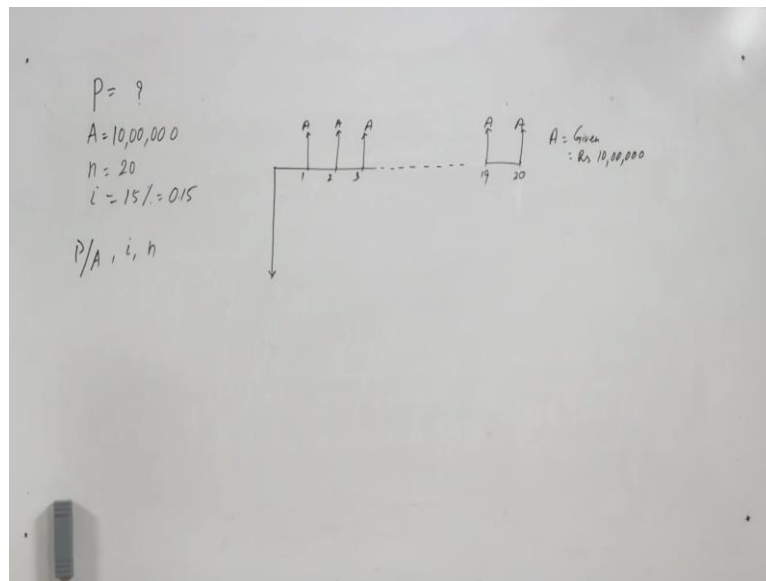 P= ?
A=10,00,000
n= 20
i = 15%=0.15
P/A, i, n
A A A A A
1 2 3 19 20
A= Given
= Rs 10,00,000